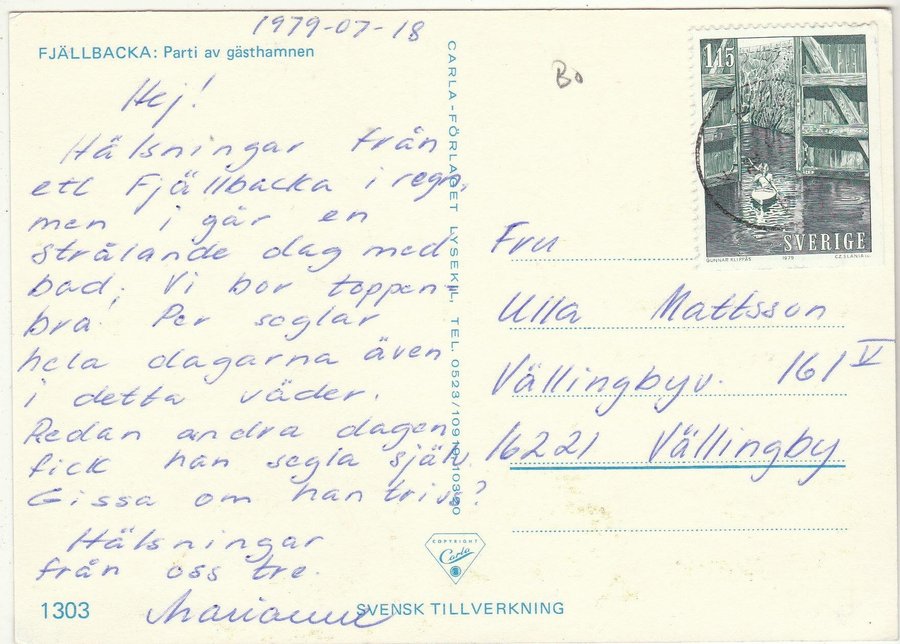 1979-07-18
FJÄLLBACKA: Parti av gästhamnen
Hej!
Hälsningar från
ett Fjällbacka i regn,
men i går en
strålande dag med
bad. Vi bor toppen-
bra. Per seglar
hela dagarna även
i detta väder.
Redan andra dagen
fick han segla själv.
Gissa om han trivs?
Hälsningar
från oss tre.
Marianne
1303
CARLA-FÖRLAGET LYSEKIL, TEL. 0523/10919, 10390
COPYRIGHT
Carla
SVENSK TILLVERKNING
Bo
115
SVERIGE
GUNNAR KLIPPÅS 1979 CZ.SLANIA sc.
Fru
Ulla Mattsson
Vällingbyv. 161 V
16221 Vällingby